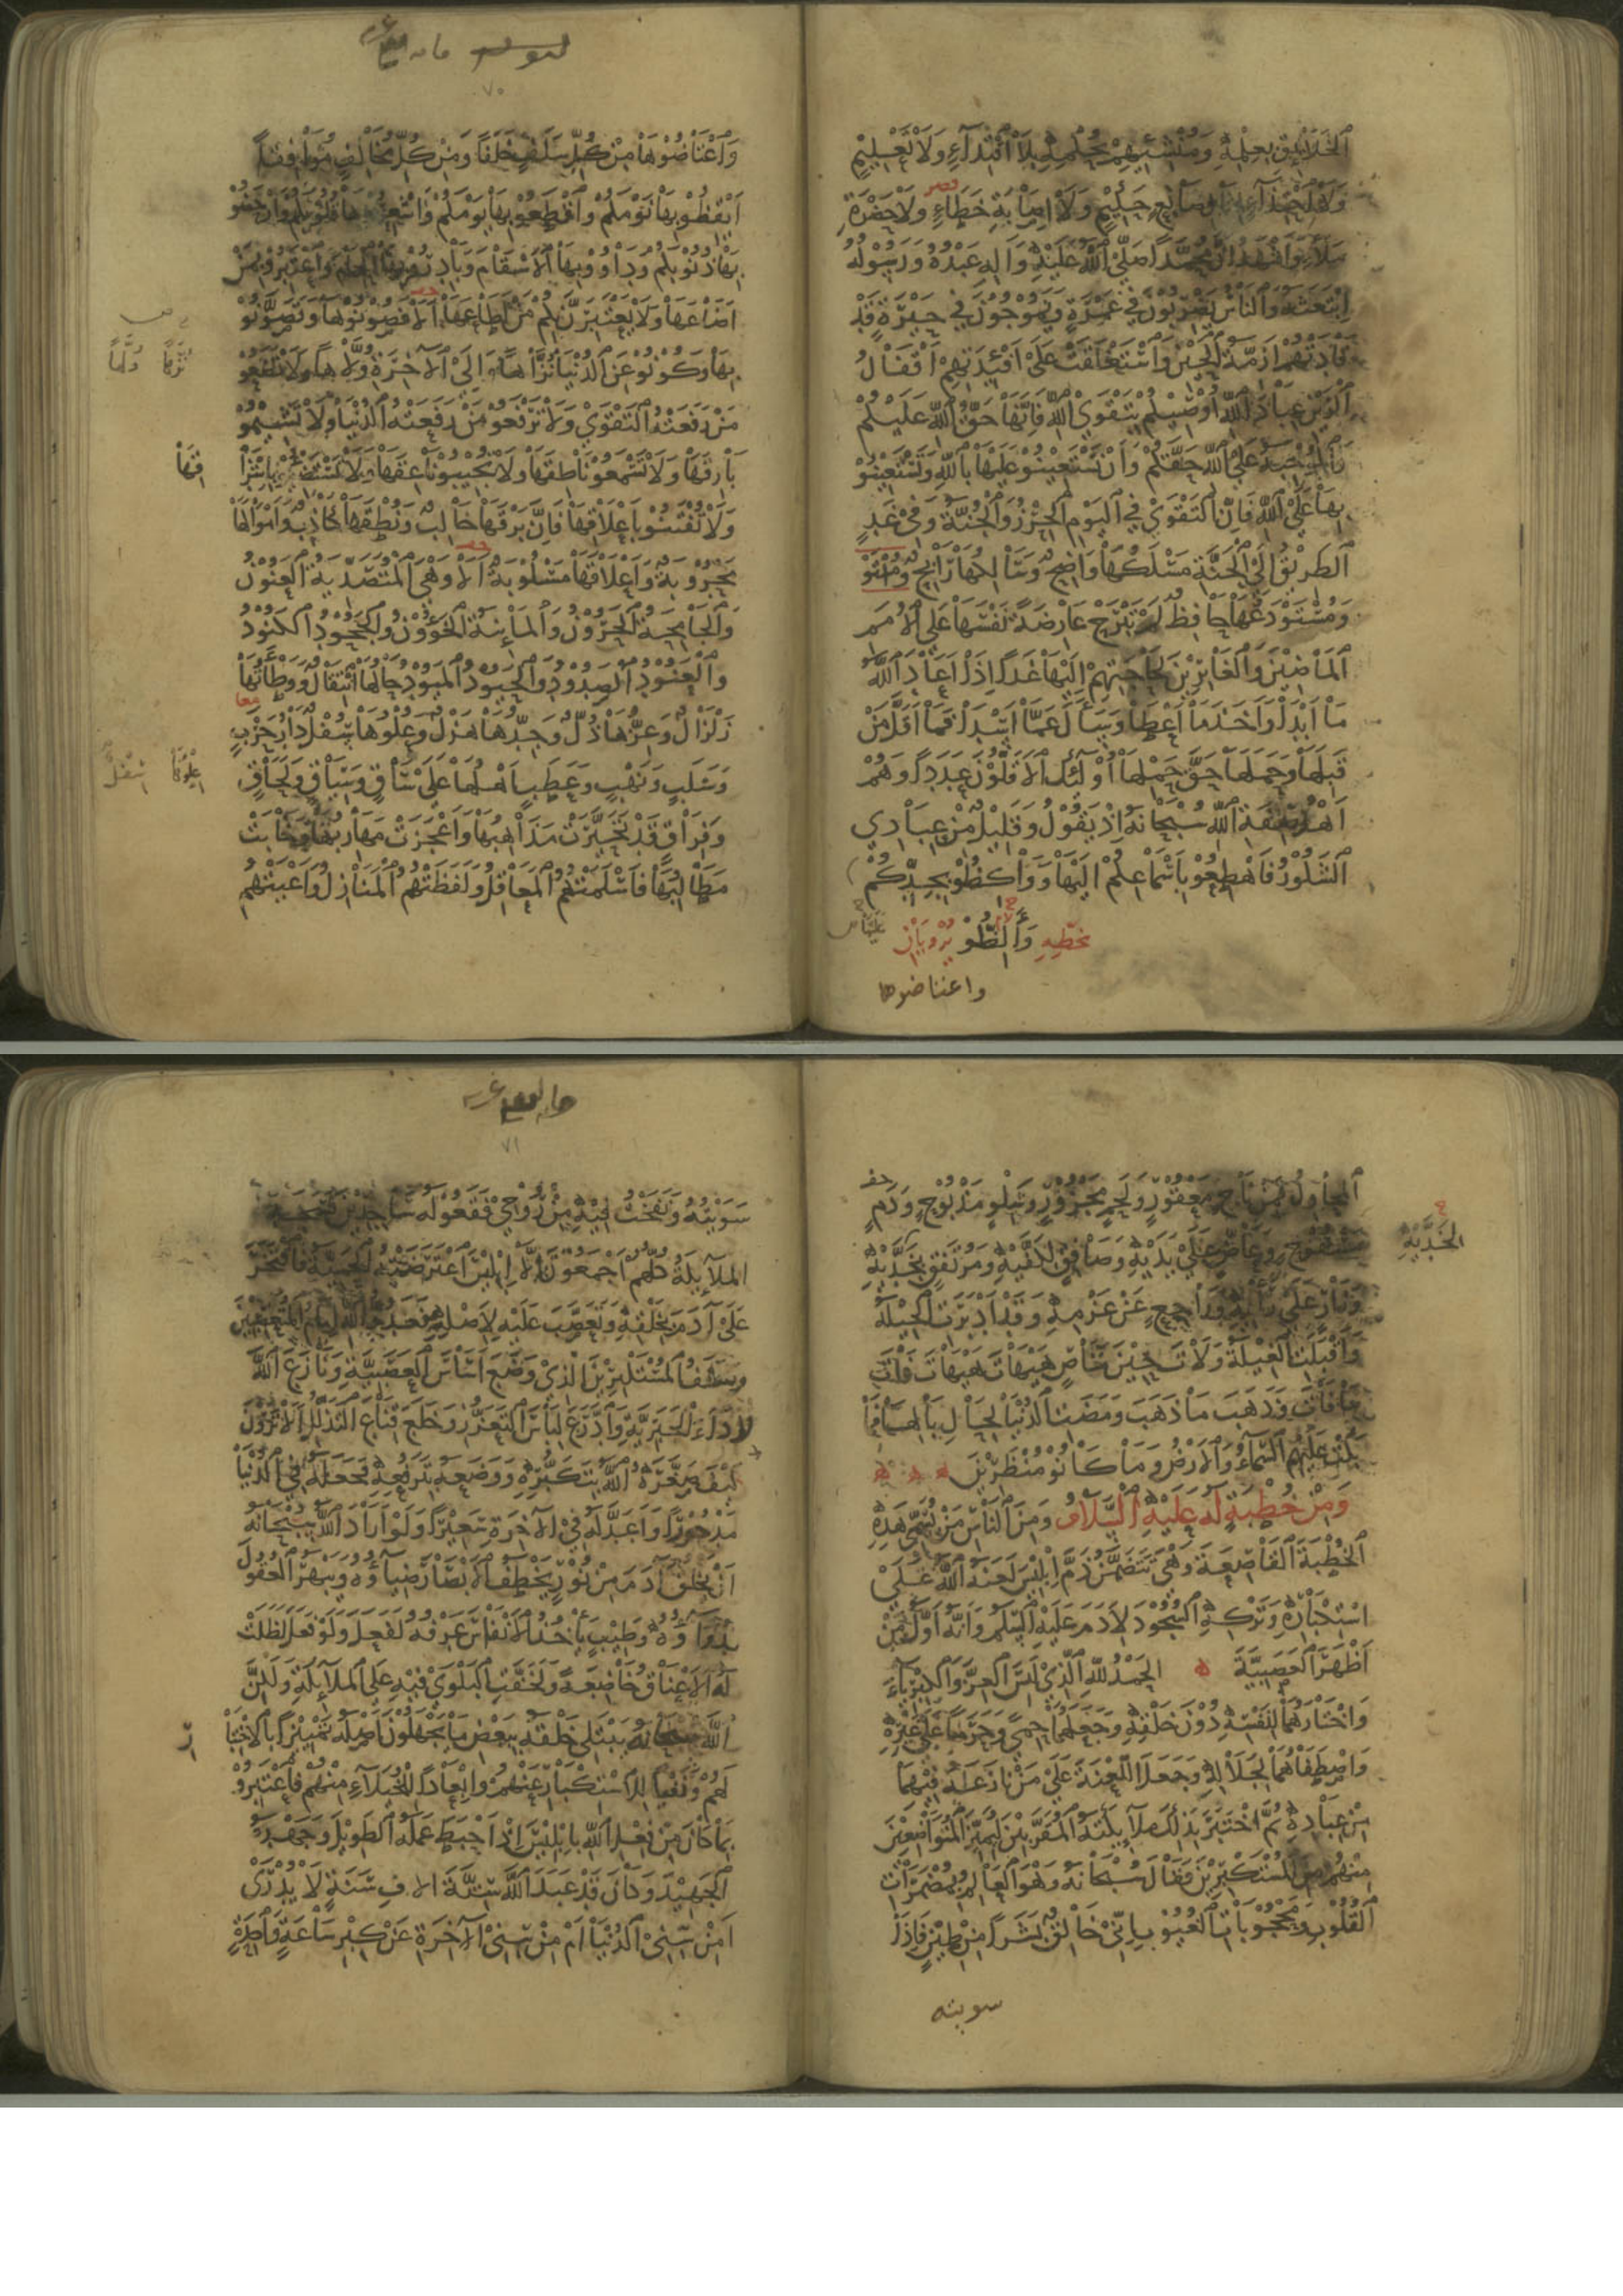 الخَلَائِقِ بِعِلْمِهِ وَمُنْشِئِهِمْ بِحُكْمِهِ بِلَا اقْتِدَاءٍ وَلَا تَعْلِيْمٍ
وَلَا احْتِذَاءٍ لِمِثَالِ صَانِعٍ حَكِيْمٍ وَلَا اِصَابَةِ خَطَاءٍ وَلَا حَضْرَةِ
مَلَاءٍ وَاَشْهَدُ اَنَّ مُحَمَّدًا صَلَّى اللهُ عَلَيْهِ وَآلِهِ عَبْدُهُ وَرَسُوْلُهُ
اِبْتَعَثَهُ وَالنَّاسُ يَضْرِبُوْنَ فِي غَمْرَةٍ وَيَمُوْجُوْنَ فِي حَيْرَةٍ قَدْ
قَادَتْهُمْ اَزِمَّةُ الحَيْنِ وَاسْتَغْلَقَتْ عَلَى اَفْئِدَتِهِمْ اَقْفَالُ
الرَّيْنِ عِبَادَ اللهِ اُوْصِيْكُمْ بِتَقْوَى اللهِ فَاِنَّهَا حَقُّ اللهِ عَلَيْكُمْ
وَالمُوْجِبَةُ عَلَى اللهِ حَقَّكُمْ وَاَنْ تَسْتَعِيْنُوْ عَلَيْهَا بِاللهِ وَتَسْتَعِيْنُوْ
بِهَا عَلَى اللهِ فَاِنَّ التَّقْوَى فِي اليَوْمِ الحِرْزُ وَالجُنَّةُ وَفِي غَدٍ
الطَرِيْقُ اِلَى الجَنَّةِ مَسْلَكُهَا وَاضِحٌ وَسَالِكُهَا رَابِحٌ
وَمُسْتَوْدَعُهَا حَافِظٌ لَمْ تَبْرَحْ عَارِضَةً نَفْسَهَا عَلَى الاُمَمِ
المَاضِيْنَ وَالغَابِرِيْنَ لِحَاجَتِهِمْ اِلَيْهَا غَدًا اِذَا اَعَادَ اللهُ
مَا اَبْدَا وَاَخَذَ مَا اَعْطَا وَسَأَلَ عَمَّا اَسْدَا فَمَا اَقَلَّ مَنْ
قَبِلَهَا وَحَمَلَهَا حَقَّ حَمْلِهَا اُوْلَئِكَ الاَقَلُّوْنَ عَدَدًا وَهُمْ
اَهْلُ صِفَةِ اللهِ سُبْحَانَهُ اِذْ يَقُوْلُ وَقَلِيْلٌ مِنْ عِبَادِي
الشَّكُوْرُ فَاَهْطِعُوْ بِاَسْمَاعِكُمْ اِلَيْهَا وَوَاكِظُوْ بِجِدِّكُمْ
بخَطِّهِ وَاَلِظُّوْ
واعتاضوها
وَاعْتَاضُوْهَا مِنْ كُلِّ سَلَفٍ خَلَفًا وَمِنْ كُلِّ مُخَالِفٍ مُوَافِقًا
اَيْقِظُوْ بِهَا نَوْمَكُمْ وَاقْطَعُوْ بِهَا يَوْمَكُمْ وَاَشْعِرُوْهَا قُلُوْبَكُمْ وَارْحَضُوْ
بِهَا ذُنُوْبَكُمْ وَدَاوُوْ بِهَا الاَسْقَامَ وَبَادِرُوْ بِهَا الحِمَامَ وَاعْتَبِرُوْ بِمَنْ
اَضَاعَهَا وَلَا يَعْتَبِرَنَّ بِكُمْ مَنْ اَطَاعَهَا اَلَا فَصُوْنُوْهَا وَتَصَوَّنُوْ
بِهَا وَكُوْنُوْ عَنِ الدُّنْيَا نُزَّاهًا وَاِلَى الآخِرَةِ وُلَّاهًا وَلَا تَضَعُوْ
مَنْ رَفَعَتْهُ التَّقْوَى وَلَا تَرْفَعُوْ مَنْ رَفَعَتْهُ الدُّنْيَا وَلَا تَشِيْمُوْ
بَارِقَهَا وَلَا تَسْمَعُوْ نَاطِقَهَا وَلَا تُجِيْبُوْ نَاعِقَهَا وَلَا تَسْتَضِيْئُوْ بِاِشْرَا
قِهَا
وَلَا تُفْتَنُوْ بِاَعْلَاقِهَا فَاِنَّ بَرْقَهَا خَالِبٌ وَنُطْقَهَا كَاذِبٌ وَاَمْوَالَهَا
مَحْرُوْبَةٌ وَاَعْلَاقَهَا مَسْلُوْبَةٌ اَلَا وَهِيَ المُتَصَدِّيَةُ العَنُوْنُ
وَالجَامِحَةُ الحَرُوْنُ وَالمَائِنَةُ الخَؤُوْنُ وَالجَحُوْدُ الكَنُوْدُ
وَالعَنُوْدُ الصَدُوْدُ وَالحَيُوْدُ المَيُوْدُ حَالُهَا انْتِقَالٌ وَوَطْأَتُهَا
زَلْزَالٌ وَعِزُّهَا ذُلٌّ وَجِدُّهَا هَزْلٌ وَعُلُوُّهَا سُفْلٌ دَارُ حَرْبٍ
وَسَلَبٍ وَنَهْبٍ وَعَطَبٍ اَهْلُهَا عَلَى سَاقٍ وَسِيَاقٍ وَلَحَاقٍ
وَفِرَاقٍ قَدْ تَحَيَّرَتْ مَذَاهِبُهَا وَاَعْجَزَتْ مَهَارِبُهَا وَخَابَتْ
مَطَالِبُهَا فَاَسْلَمَتْهُمُ المَعَاقِلُ وَلَفَظَتْهُمُ المَنَازِلُ وَاَعْيَتْهُمُ
المَحَاوِلُ فَمِنْ نَاجٍ مَعْقُوْرٍ وَلَحْمٍ مَجْزُوْرٍ وَشِلْوٍ مَذْبُوْحٍ وَدَمٍ
مَسْفُوْحٍ وَعَاضٍّ عَلَى يَدَيْهِ وَصَافِقٍ لِكَفَّيْهِ وَمُرْتَفِقٍ بِخَدَّيْهِ
وَزَارٍ عَلَى رَأْيِهِ وَرَاجِعٍ عَنْ عَزْمِهِ وَقَدْ اَدْبَرَتِ الحِيْلَةُ
وَاَقْبَلَتِ الغِيْلَةُ وَلَاتَ حِيْنَ مَنَاصٍ هَيْهَاتَ هَيْهَاتَ قَدْ فَاتَ
مَا فَاتَ وَذَهَبَ مَا ذَهَبَ وَمَضَتِ الدُّنْيَا لِحَالِ بَالِهَا فَمَا
بَكَتْ عَلَيْهِمُ السَّمَاءُ وَالاَرْضُ وَمَا كَانُوْ مُنْظَرِيْنَ
وَمِنْ خُطْبَةٍ لَهُ عَلَيْهِ السَّلَامُ وَمِنَ النَّاسِ مَنْ يُسَمِّي هَذِهِ
الخُطْبَةَ القَاصِعَةَ وَهِيَ تَتَضَمَّنُ ذَمَّ اِبْلِيْسَ لَعَنَهُ اللهُ عَلَى
اسْتِكْبَارِهِ وَتَرْكِهِ السُّجُوْدَ لِآدَمَ عَلَيْهِ السَّلَمُ وَاَنَّهُ اَوَّلُ مَنْ
اَظْهَرَ العَصَبِيَّةَ الحَمْدُ لِلّهِ الَّذِي لَبِسَ العِزَّ وَالكِبْرِيَاءَ
وَاخْتَارَهُمَا لِنَفْسِهِ دُوْنَ خَلْقِهِ وَجَعَلَهُمَا حِمًى وَحَرَمًا عَلَى غَيْرِهِ
وَاصْطَفَاهُمَا لِجَلَالِهِ وَجَعَلَ اللَّعْنَةَ عَلَى مَنْ نَازَعَهُ فِيْهِمَا
مِنْ عِبَادِهِ ثُمَّ اخْتَبَرَ بِذَلِكَ مَلَائِكَتَهُ المُقَرَّبِيْنَ لِيَمِيْزَ المُتَوَاضِعِيْنَ
مِنْهُمْ مِنَ المُسْتَكْبِرِيْنَ فَقَالَ سُبْحَانَهُ وَهُوَ العَالِمُ بِمُضْمَرَاتِ
القُلُوْبِ وَمَحْجُوْبَاتِ الغُيُوْبِ اِنِّي خَالِقٌ بَشَرًا مِنْ طِيْنٍ فَاِذَا
سويته
سَوَّيْتُهُ وَنَفَخْتُ فِيْهِ مِنْ رُوْحِي فَقَعُوْ لَهُ سَاجِدِيْنَ فَسَجَدَ
المَلَائِكَةُ كُلُّهُمْ اَجْمَعُوْنَ اِلَّا اِبْلِيْسَ اعْتَرَضَتْهُ الحَمِيَّةُ فَافْتَخَرَ
عَلَى آدَمَ بِخَلْقِهِ وَتَعَصَّبَ عَلَيْهِ لِاَصْلِهِ فَعَدُوُّ اللهِ اِمَامُ المُتَعَصِّبِيْنَ
وَسَلَفُ المُسْتَكْبِرِيْنَ الَّذِي وَضَعَ اَسَاسَ العَصَبِيَّةِ وَنَازَعَ اللهَ
رِدَاءَ الجَبَرِيَّةِ وَادَّرَعَ لِبَاسَ التَّعَزُّزِ وَخَلَعَ قِنَاعَ التَّذَلُّلِ اَلَا تَرَوْنَ
كَيْفَ صَغَّرَهُ اللهُ بِتَكَبُّرِهِ وَوَضَعَهُ بِتَرَفُّعِهِ فَجَعَلَهُ فِي الدُّنْيَا
مَدْحُوْرًا وَاَعَدَّ لَهُ فِي الآخِرَةِ سَعِيْرًا وَلَوْ اَرَادَ اللهُ سُبْحَانَهُ
اَنْ يَخْلُقَ آدَمَ مِنْ نُوْرٍ يَخْطَفُ الاَبْصَارَ ضِيَاؤُهُ وَيَبْهَرُ العُقُوْلَ
رُوَاؤُهُ وَطِيْبٍ يَأْخُذُ الاَنْفَاسَ عَرْفُهُ لَفَعَلَ وَلَوْ فَعَلَ لَظَلَّتْ
لَهُ الاَعْنَاقُ خَاضِعَةً وَلَخَفَّتِ البَلْوَى فِيْهِ عَلَى المَلَائِكَةِ وَلَكِنَّ
اللهَ سُبْحَانَهُ يَبْتَلِي خَلْقَهُ بِبَعْضِ مَا يَجْهَلُوْنَ اَصْلَهُ تَمْيِيْزًا بِالاخْتِبَا
رِ
لَهُمْ وَنَفْيًا لِلاسْتِكْبَارِ عَنْهُمْ وَاِبْعَادًا لِلْخُيَلَاءِ مِنْهُمْ فَاعْتَبِرُوْ
بِمَا كَانَ مِنْ فِعْلِ اللهِ بِاِبْلِيْسَ اِذْ اَحْبَطَ عَمَلَهُ الطَوِيْلَ وَجَهْدَهُ
الجَهِيْدَ وَكَانَ قَدْ عَبَدَ اللهَ سِتَّةَ الافِ سَنَةٍ لَا يُدْرَى
اَمِنْ سِنِي الدُّنْيَا اَمْ مِنْ سِنِي الآخِرَةِ عَنْ كِبْرِ سَاعَةٍ وَاحِدَةٍ